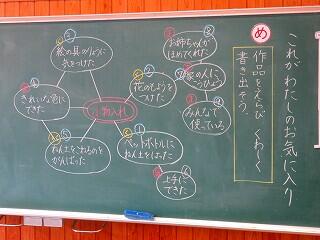 これがわたしのお気に入り
め
作品をえらび くわしく
書き出そう。
小物入れ
お姉ちゃんが
ほめてくれた
家の人に
みんなで
使っている
花のもようを
つけた
絵の具のように
気をつけた
きれいな色に
できた
ねん土をこねるのを
がんばった
ペットボトルに
ねん土をはった
上手に
できた